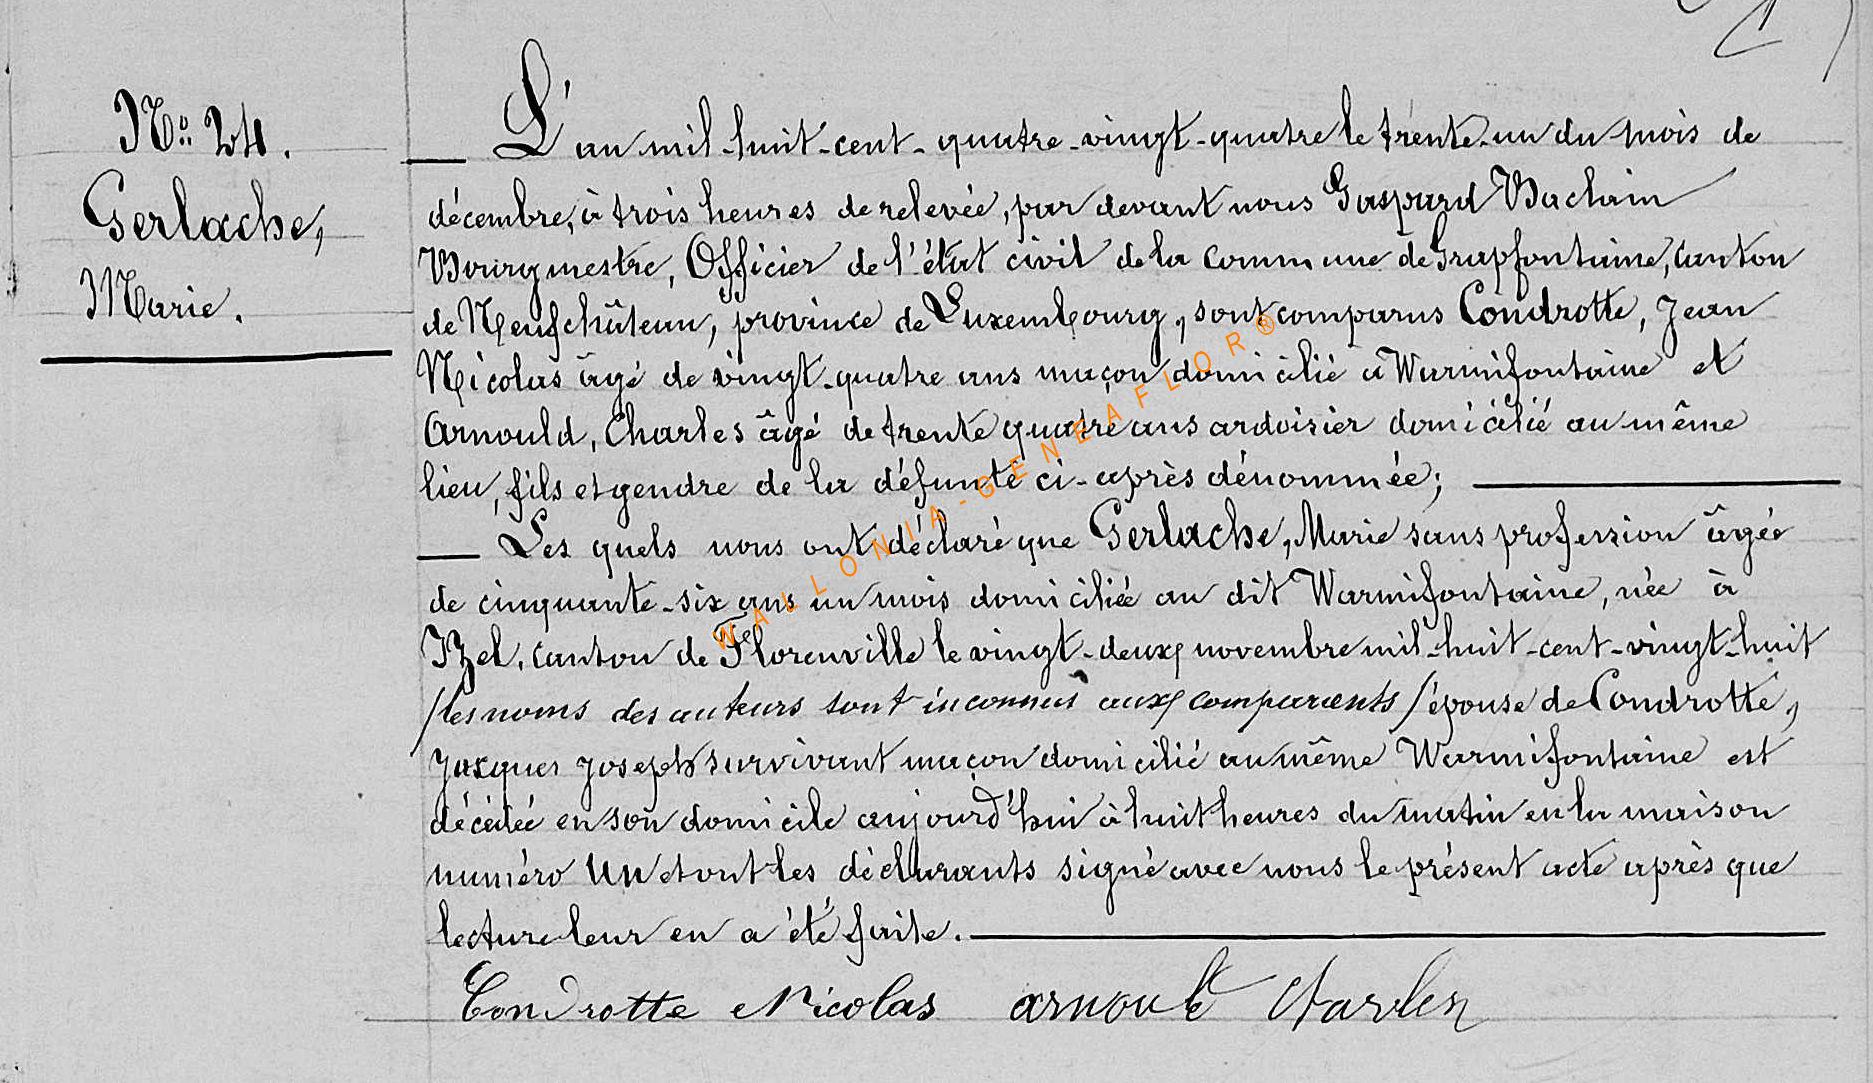 No 24.
Gerlache,
Marie.
L'an mil-huit-cent-quatre-vingt-quatre le trente-un du mois de
décembre, à trois heures de relevée, par devant nous Gaspard Bachain
Bourgmestre, Officier de l'état civil de la commune de Grapfontaine, canton
de Neufchâteau, province de Luxembourg, sont comparus Condrotte, Jean
Nicolas âgé de vingt-quatre ans maçon domicilié à Warmifontaine et
Arnould, Charles âgé de trente quatre ans ardoisier domicilié au même
lieu, fils et gendre de la défunte ci-après dénommée;
Les quels nous ont déclaré que Gerlache, Marie sans profession âgée
de cinquante-six ans un mois domiciliée au dit Warmifontaine, née à
Izel, canton de Florenville le vingt-deux novembre mil-huit-cent-vingt-huit
/les noms des auteurs sont inconnus aux comparants/ épouse de Condrotte,
Jacques Joseph survivant maçon domicilié au même Warmifontaine est
décédée en son domicile aujourd'hui à huit heures du matin en la maison
numéro un et ont les déclarants signé avec nous le présent acte après que
lecture leur en a été faite.
Condrotte Nicolas arnould Charles
WALLONIA-GENEAFLOR®